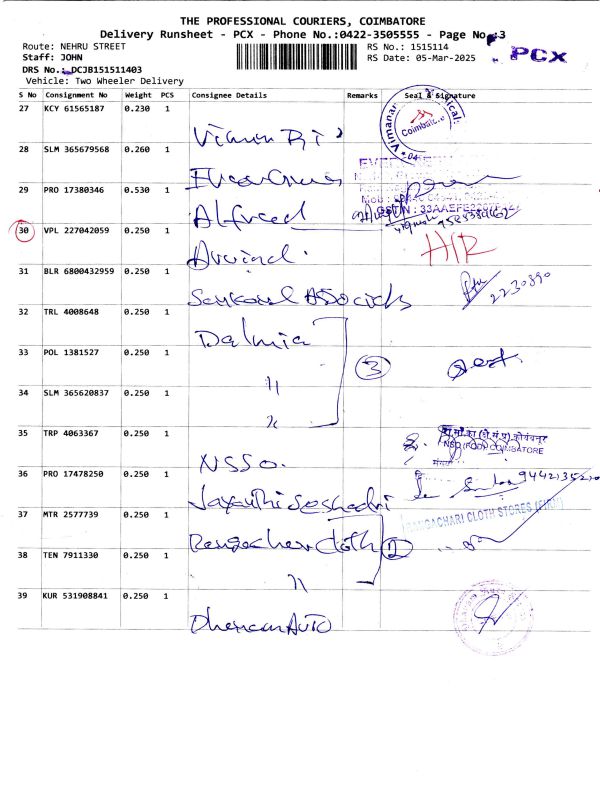 THE PROFESSIONAL COURIERS, COIMBATORE
Delivery Runsheet - PCX - Phone No.:0422-3505555 - Page No.:3
Route: NEHRU STREET
RS No.: 1515114
Staff: JOHN
RS Date: 05-Mar-2025
PCX
DRS No.: DCJB151511403
Vehicle: Two Wheeler Delivery
S No Consignment No Weight PCS Consignee Details Remarks Seal & Signature
27 KCY 61565187 0.230 1
Vimanar
Coimbatore
28 SLM 365679568 0.260 1
29 PRO 17380346 0.530 1 Alfreed
30 VPL 227042059 0.250 1 Arvind.
31 BLR 6800432959 0.250 1 Associats
2230890
32 TRL 4008648 0.250 1 Dalmia
33 POL 1381527 0.250 1 "
3
34 SLM 365620837 0.250 1 "
35 TRP 4063367 0.250 1 NSSO.
NSO (FOD) COIMBATORE
36 PRO 17478250 0.250 1 Jayanthi Seshadri
37 MTR 2577739 0.250 1 Cloth
2
RANGACHARI CLOTH STORES (FIRM)
38 TEN 7911330 0.250 1 "
39 KUR 531908841 0.250 1 AUTO